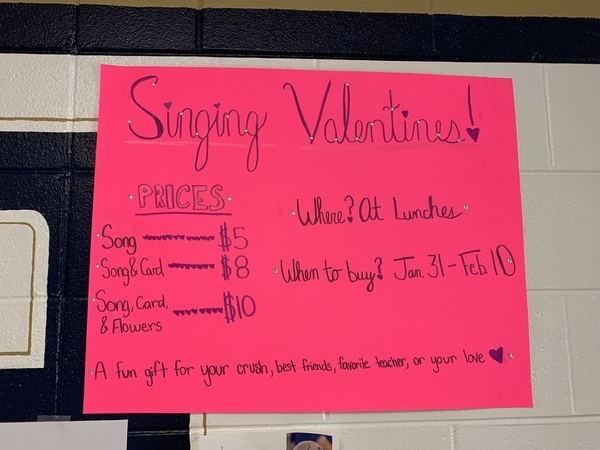 Singing Valentines!
PRICES
Song $5
Song & Card $8
Song, Card, & Flowers $10
Where? At Lunches
When to buy? Jan. 31 - Feb. 10
A fun gift for your crush, best friends, favorite teacher, or your love